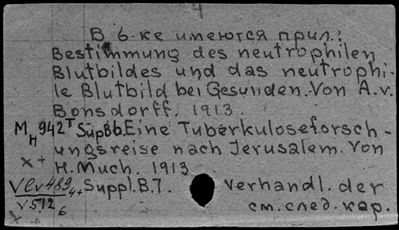 В б-ке имеются прил.:
Bestimmung des neutrophilen
Blutbildes und das neutrophi-
le Blutbild bei Gesunden. Von A.v.
Bonsdorff. 1913.
MH 942т Supb6. Eine Tuberkuloseforsch-
ungsreise nach Jerusalem. Von
H. Much. 1913
Suppl. B. 7. Verhandl. der
V512 6 см. след. кар.